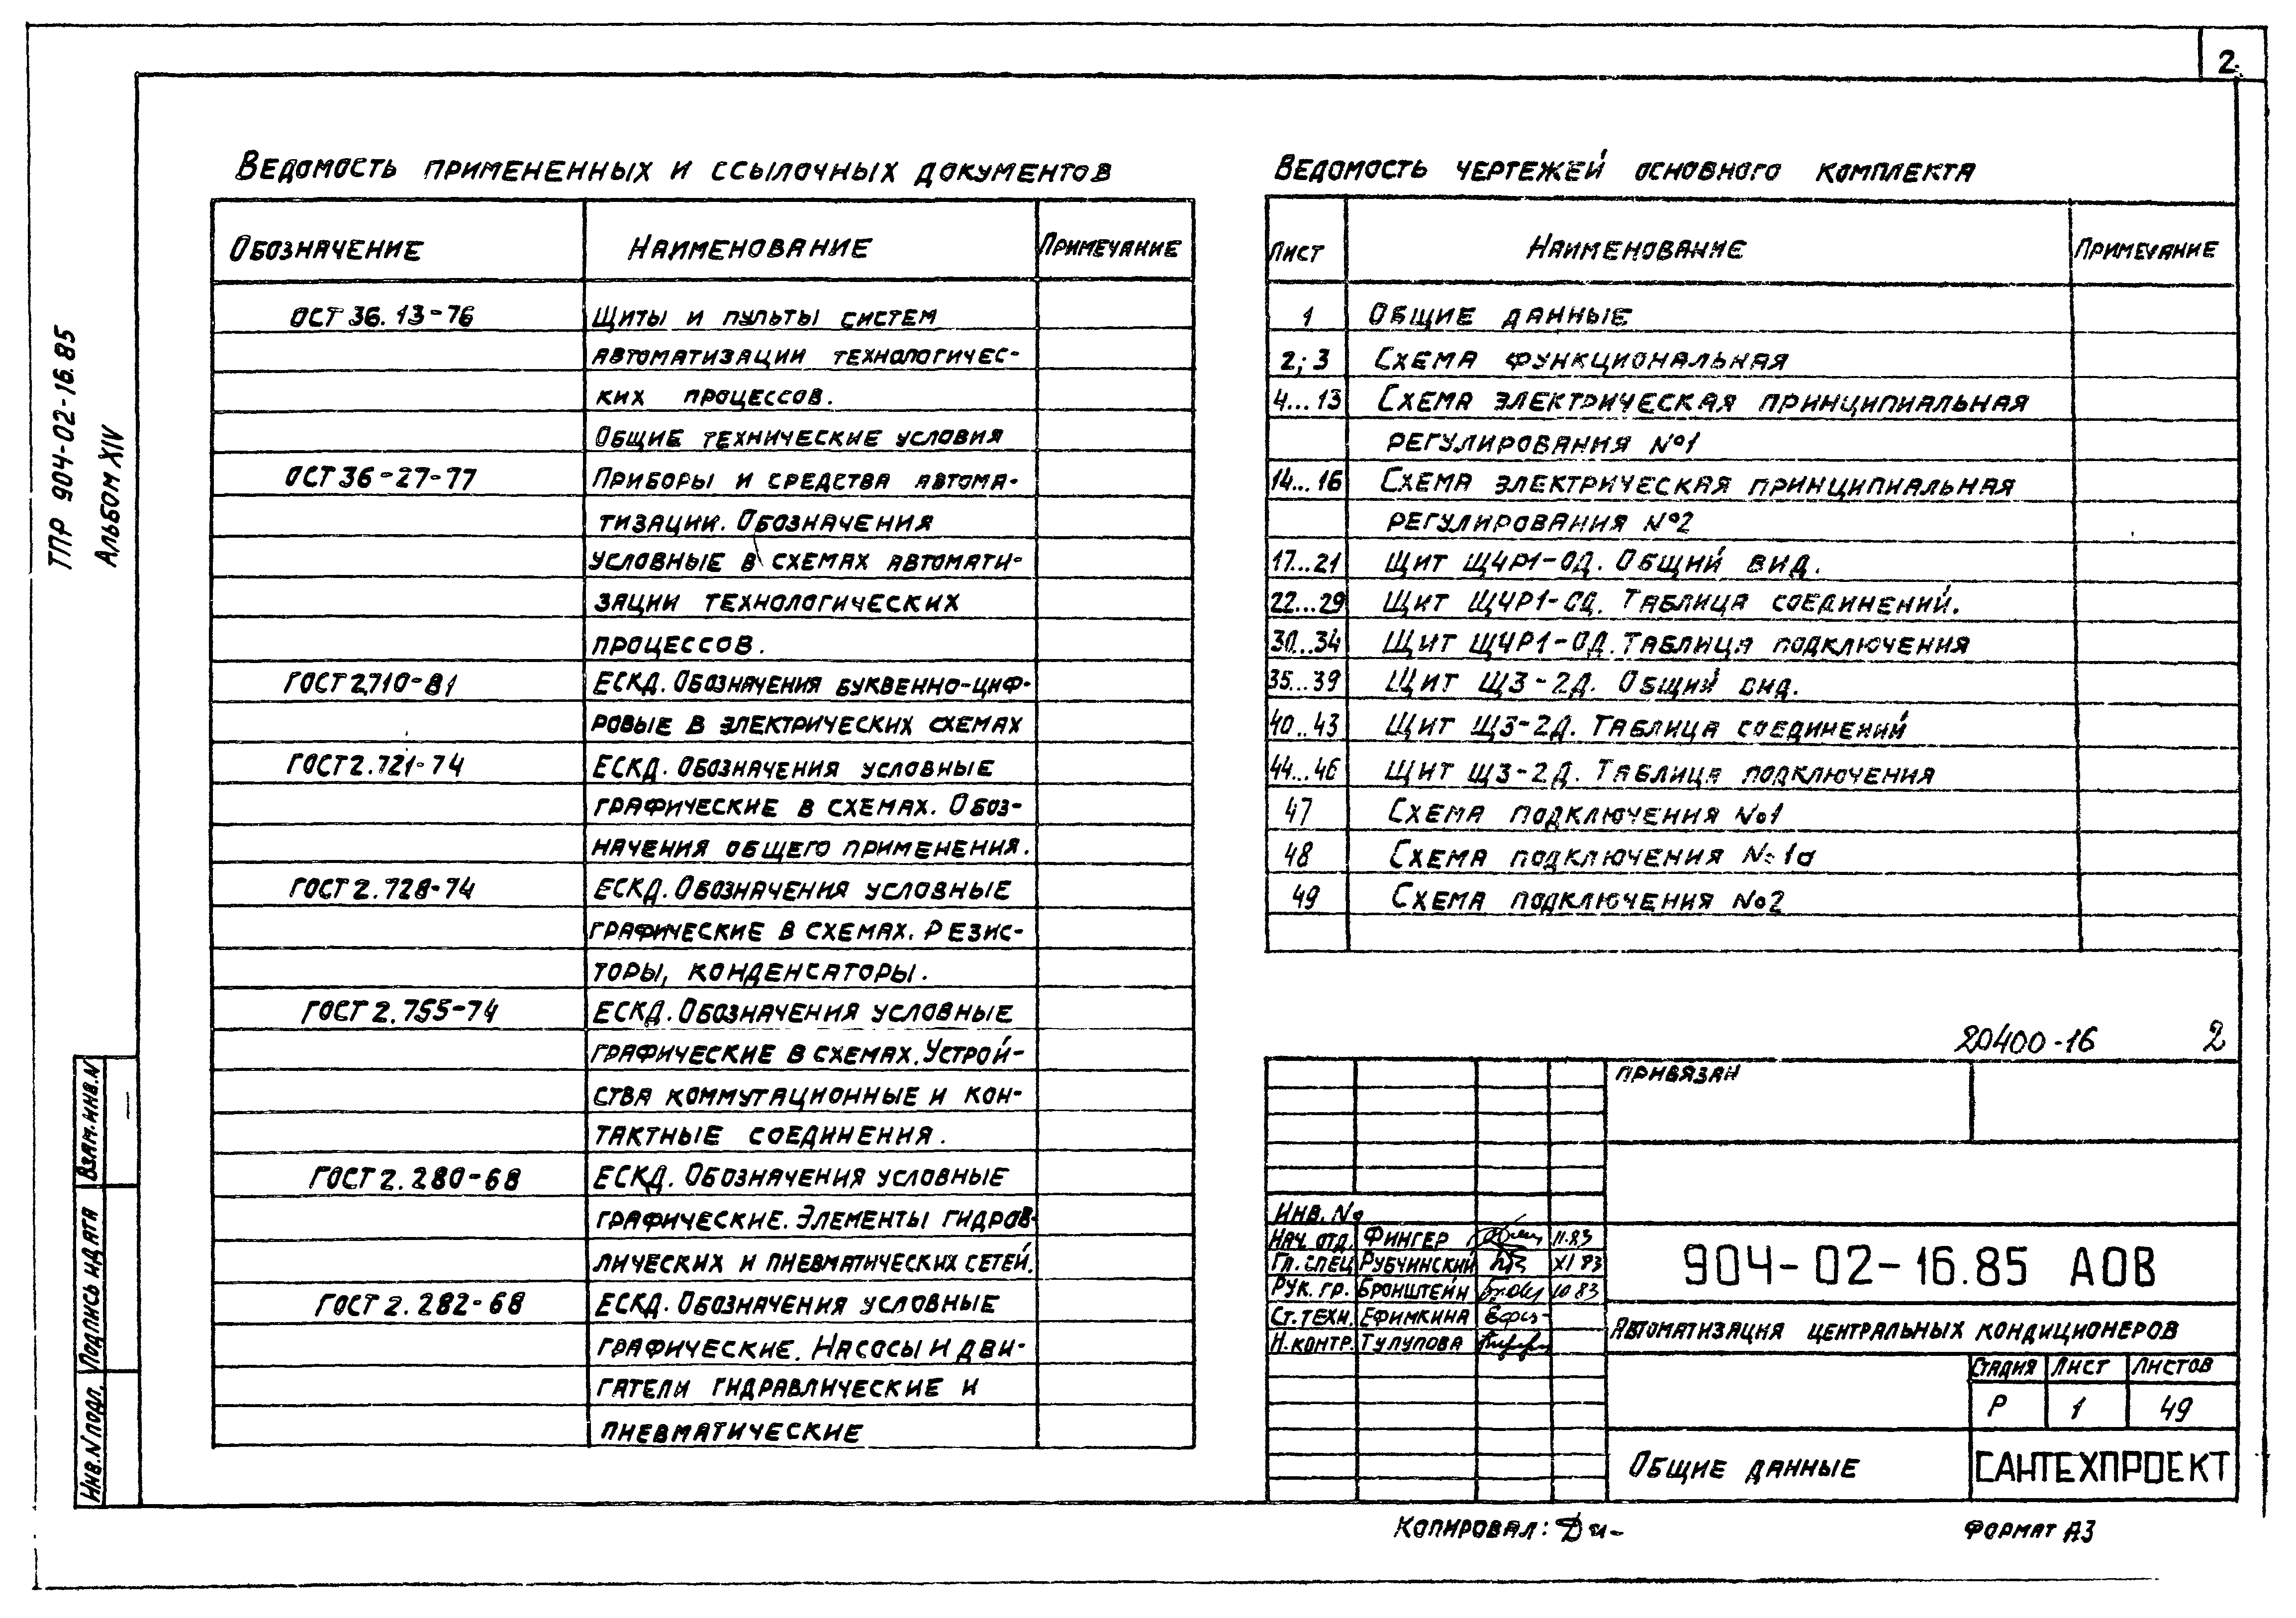 2.
ТПР 904-02-16.85
Альбом XIV
Ведомость примененных и ссылочных документов
Обозначение Наименование Примечание
ОСТ 36.13-76 Щиты и пульты систем
автоматизации технологичес-
ких процессов.
Общие технические условия
ОСТ 36-27-77 Приборы и средства автома-
тизации. Обозначения
условные в схемах автомати-
зации технологических
процессов.
ГОСТ 2.710-81 ЕСКД. Обозначения буквенно-циф-
ровые в электрических схемах
ГОСТ 2.721-74 ЕСКД. Обозначения условные
графические в схемах. Обоз-
начения общего применения.
ГОСТ 2.728-74 ЕСКД. Обозначения условные
графические в схемах. Резис-
торы, конденсаторы.
ГОСТ 2.755-74 ЕСКД. Обозначения условные
графические в схемах. Устрой-
ства коммутационные и кон-
тактные соединения.
ГОСТ 2.280-68 ЕСКД. Обозначения условные
графические. Элементы гидрав-
лических и пневматических сетей.
ГОСТ 2.282-68 ЕСКД. Обозначения условные
графические. Насосы и дви-
гатели гидравлические и
пневматические
Ведомость чертежей основного комплекта
Лист Наименование Примечание
1 Общие данные
2; 3 Схема функциональная
4...13 Схема электрическая принципиальная
регулирования №1
14...16 Схема электрическая принципиальная
регулирования №2
17...21 Щит ЩЧР1-ОД. Общий вид.
22...29 Щит ЩЧР1-ОД. Таблица соединений.
30...34 Щит ЩЧР1-ОД. Таблица подключения
35...39 Щит ЩЗ-2Д. Общий вид.
40..43 Щит ЩЗ-2Д. Таблица соединений
44...46 Щит ЩЗ-2Д. Таблица подключения
47 Схема подключения №1
48 Схема подключения №1а
49 Схема подключения №2
20400-16 2
Привязан
Инв. №
Нач. отд. Фингер 11.83
Гл. спец Рубчинский XI 83
Рук. гр. Бронштейн 10 83
Ст. техн. Ефимкина
Н. контр. Тулупова
904-02-16.85 АОВ
Автоматизация центральных кондиционеров
Стадия Лист Листов
Р 1 49
Общие данные
САНТЕХПРОЕКТ
Взам. инв. N
Подпись и дата
Инв. N подл.
Копировал:
Формат А3